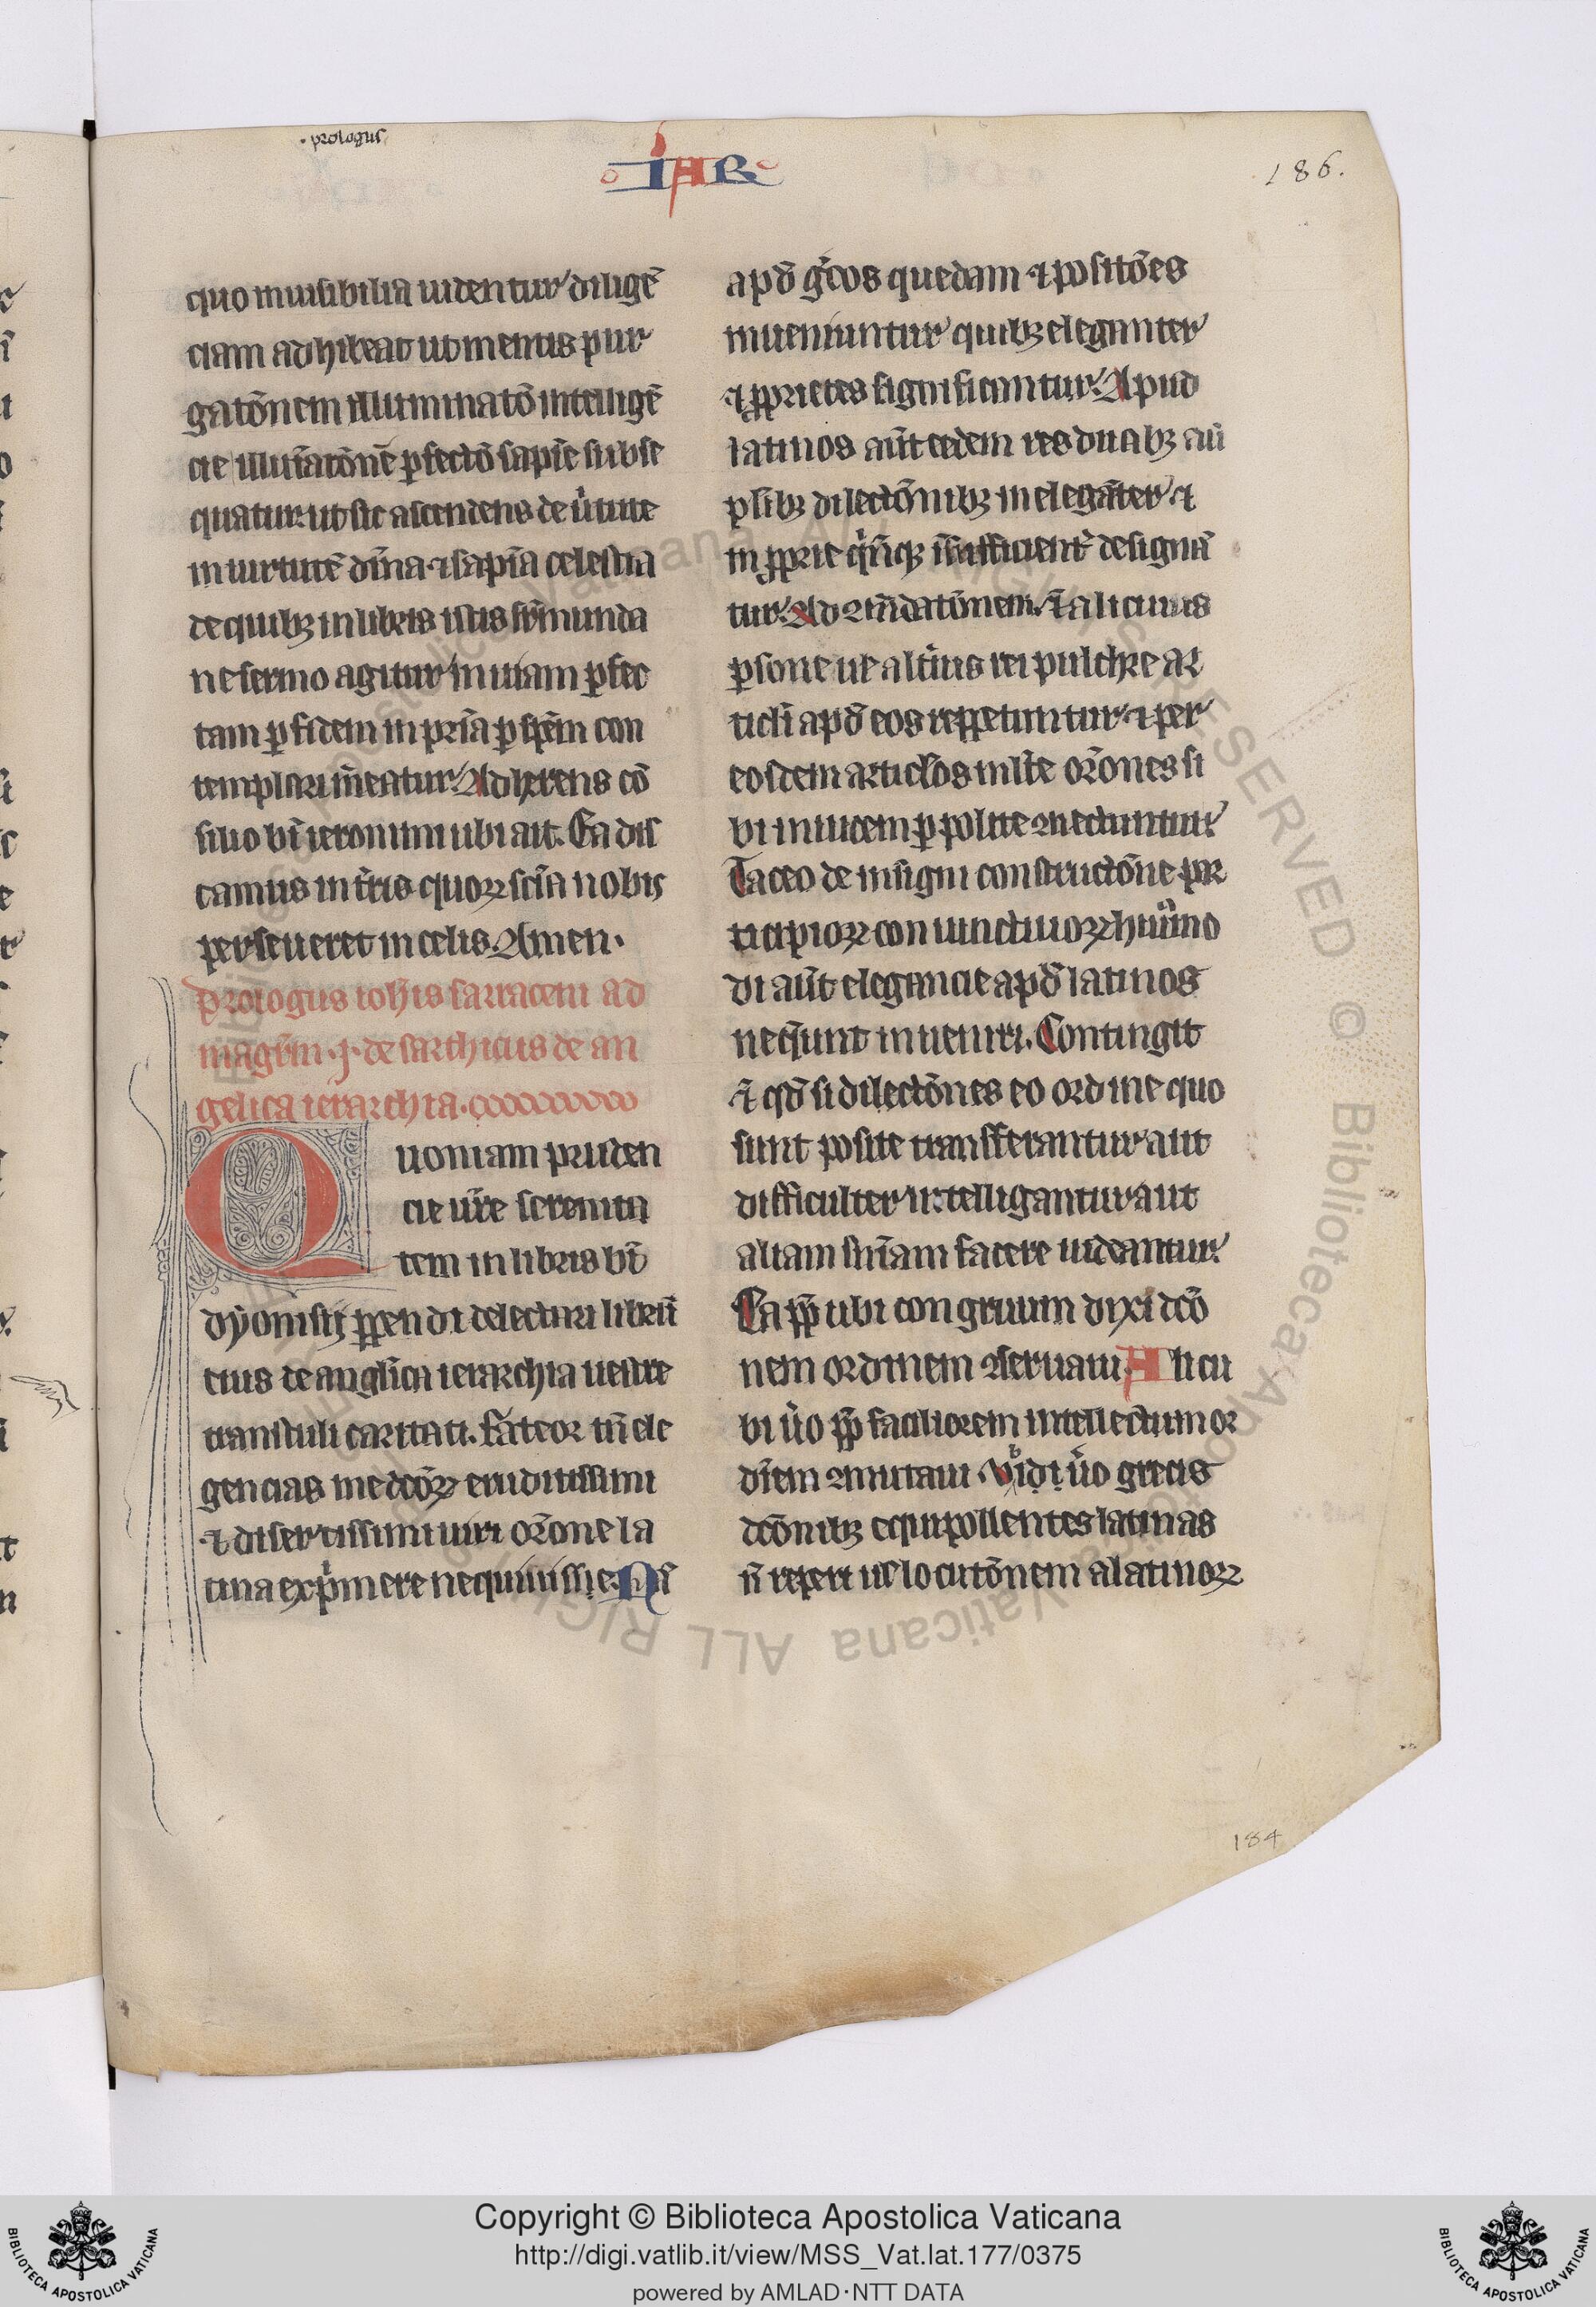 .prologus
IAR
186.
quo inuisibilia uidentur diligē
ciam adhibeat ut mentis pur
gatōnem illuminatō intelligē
cie illuīatōnē ꝑfectō sapīe subse
quatur. ut sic ascendens de ûtute
in uirtutē dīna ⁊ sapīa celestia
de quibꝫ in libris istis sꝰmunda
ne sermo agitur in uiam ꝑfec
tam ꝑ fidem in prīa ꝑ spēm con
templari m̄eatur. Adherens cō
silio bī ieronimi ubi ait. Ea dis
camus in t̄ris quoꝝ scīa nobis
perseueret in celis. Amen.
Prologus ioħis sarraceni ad
magr̄m .J. de sarchicus de an
gelica ierarchia.
Quoniam pruden
cie ur̄e serenita
tem in libris bī
dyonisij ꝑpendi delectari librū
eius de anglīca ierarchia uestre
transtuli caritati. fateor tn̄ ele
gencias me dcōꝝ eruditissimi
⁊ disertissimi uiri or̄one la
tina exp̄mere nequiuisse. Nā
apđ gͤcos quedam ⁊positōes
inueniuntur quibꝫ eleganter
⁊ ꝓprie res significantur. Apud
latinos aūt eedem res duabꝫ aū
plibꝫ dilectōnibꝫ inelegāter ⁊
inꝓprie qn̄qꝫ īsufficient̄ designā
tur. Ad ꝯmēdatōnem. ēt alicuius
ꝑsone ue alt̄ius rei pulchre ar
ticlī apđ eos reppetuntur ⁊ per
eosdem articlōs mlt̄e or̄ones si
bi inuicem ꝑpolite ꝯnectuntur
Taceo de insigni constructōne par
ticipioꝝ coniunctiuoꝝ huīmo
di aūt elegancie apđ latinos
nequnt inueniri. Contingit
ēt qđ si dilectōnes eo ordine quo
sunt posite transferantur aut
difficulter intelligantur aut
aliam sniām facere uideantur.
Ea ꝓp ubi congruum dixi dcō
nem ordinem ꝯseruaui. Alicu
bi ûo ꝓp faciliorem intellectum or
dīem ꝯmutaui. Vbi ûo grecis
dcōnibꝫ equipollentes latinas
n̄ reperi uel locutōnem a latinoꝝ
184
Copyright © Biblioteca Apostolica Vaticana
http://digi.vatlib.it/view/MSS_Vat.lat.177/0375
powered by AMLAD·NTT DATA